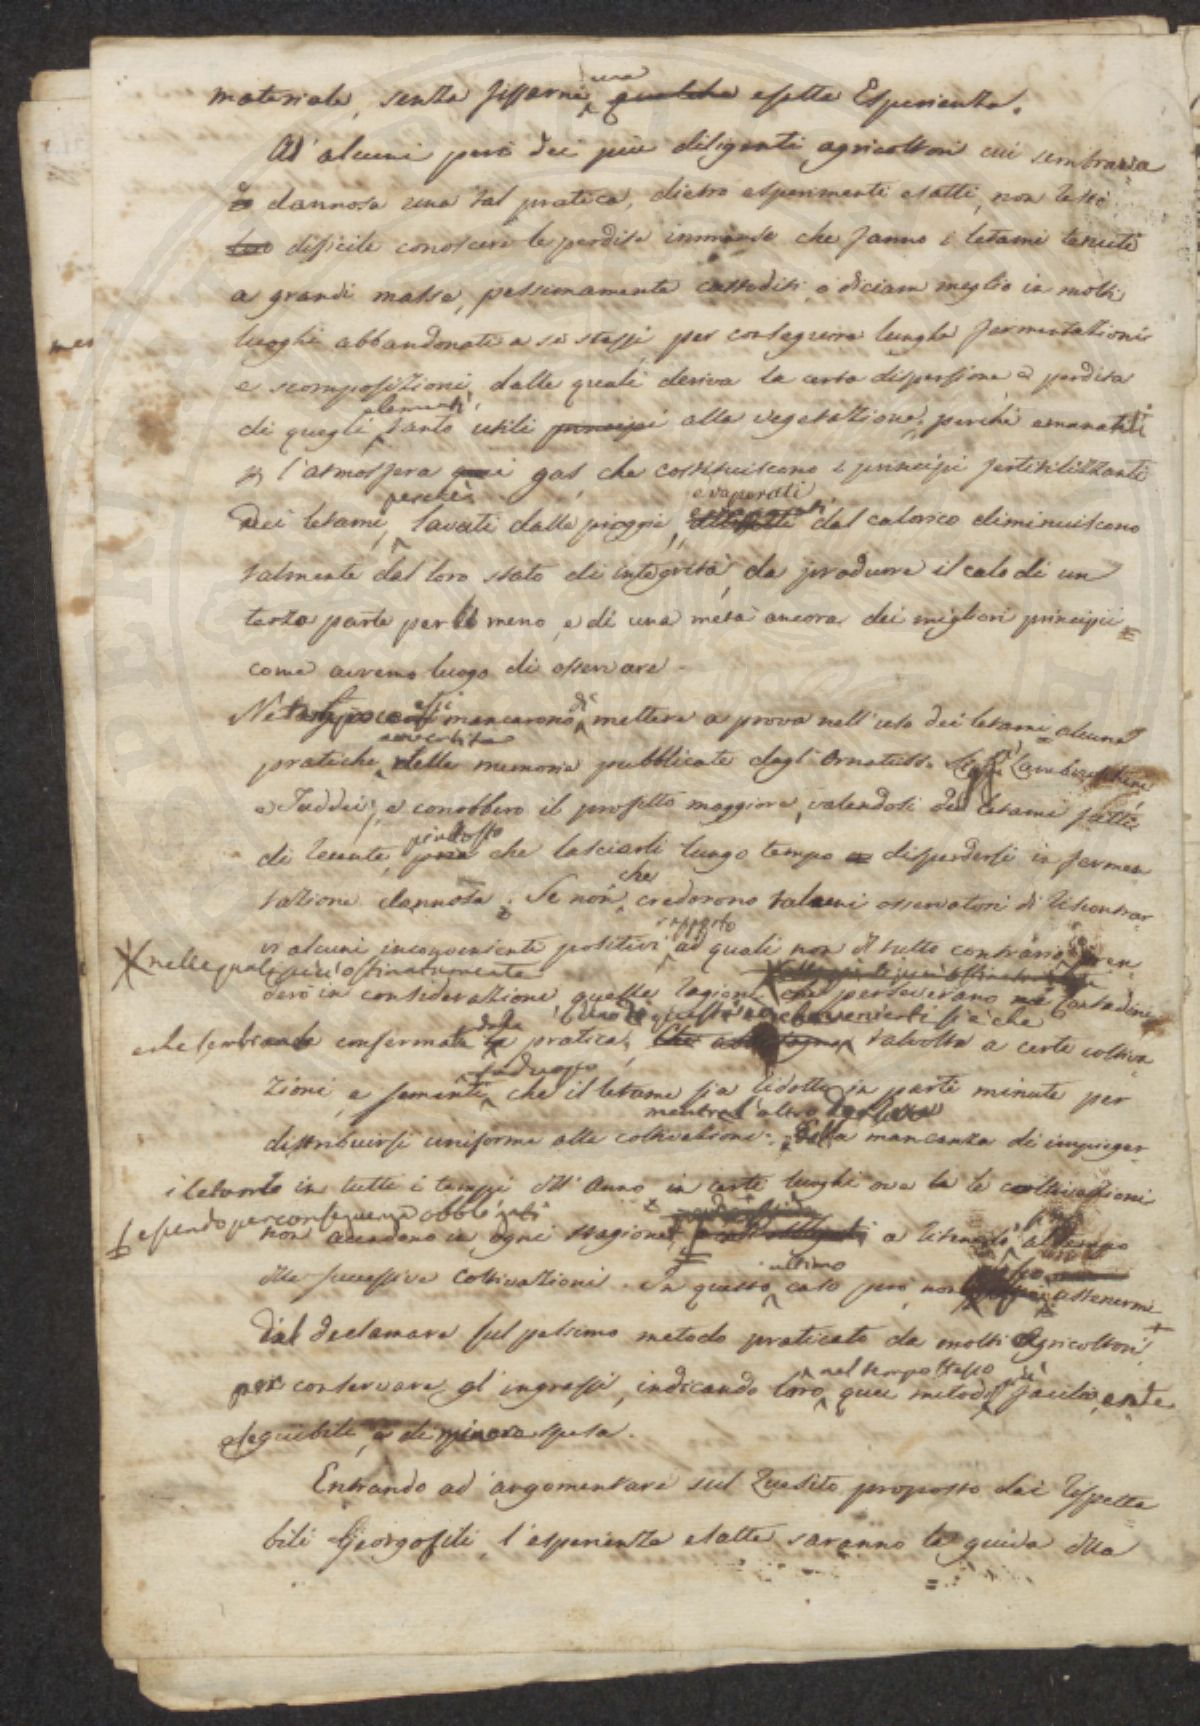 una
materiale, senza fissarne qualche esatta Esperienza.
Ad alcuni però dei più diligenti agricoltori cui sembrava
dannosa una tal pratica, dietro esperimenti esatti, non restò
difficile conoscere le perdite immense che fanno i letami tenuti
a grandi masse, pessimamente custoditi, o diciam meglio in molti
luoghi abbandonati a sè stessi, per conseguire lunghe fermentazioni
e scomposizioni, dalle quali deriva la certa dispersione e perdita
elementi
di quegli tanto utili principi alla vegetazione; perchè emanati
l'atmosfera gas, che costituiscono i principi fertilizzanti
perchè evaporati
Dei letami, lavati dalle pioggie, dal calorico diminuiscono
talmente dal loro stato di integrità, da produrre il calo di un
terza parte per lo meno, e di una metà ancora dei migliori principii
come avremo luogo di osservare.
essi di
Nè mancarono mettere a prova nell'uso dei letami alcune
avvertite
pratiche nelle memorie pubblicate dagl' Ornatiss. Lambruschini
e Taddei; e conobbero il profitto maggiore, valendosi dei letami fatti
piuttosto
di recente, che lasciarli lungo tempo disperdersi in fermen
che
tazione dannosa. Se non credorono taluni osservatori di riscontrar
rapporto
vi alcuni inconvenienti positivi ai quali non del tutto contrario, pren
nelle quali più ostinatamente
derò in considerazione quelle ragioni che perseverano i Contadini
che
e che sembrando confermata la pratica, talvolta a certe coltiva
zioni, e sementi, che il letame sia ridotto in parti minute per
mentre l'altro
distribuirsi uniforme alle coltivazioni; mancanza di impiegar
i letami in tutti i tempi dell'Anno in certi luoghi ove le coltivazioni
essendo per conseguenza obbligati
non accadono in ogni stagione, a ritenerli
ultimo
alle successive coltivazioni. In questo caso però non astenermi
Dal declamare sul pessimo metodo praticato da molti Agricoltori
nel tempo stesso
per conservare gl'ingrassi, indicando loro quei metodi facili,
eseguibili, e di minore spesa.
Entrando ad argomentare sul Quesito proposto dai rispetta
bili Georgofili, l'esperienze esatte saranno la guida alla